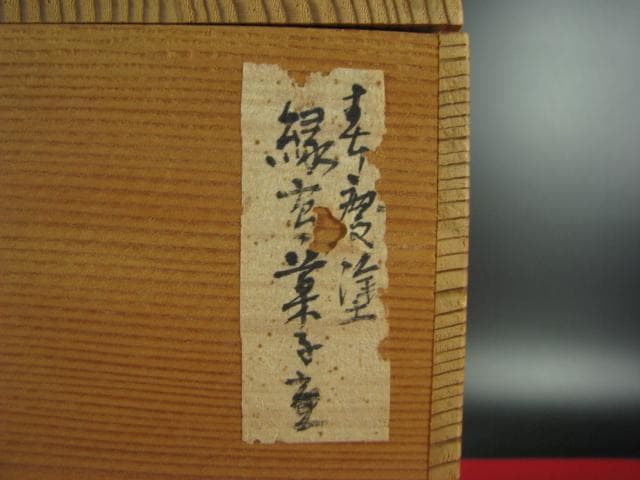 春慶塗
縁高菓子重